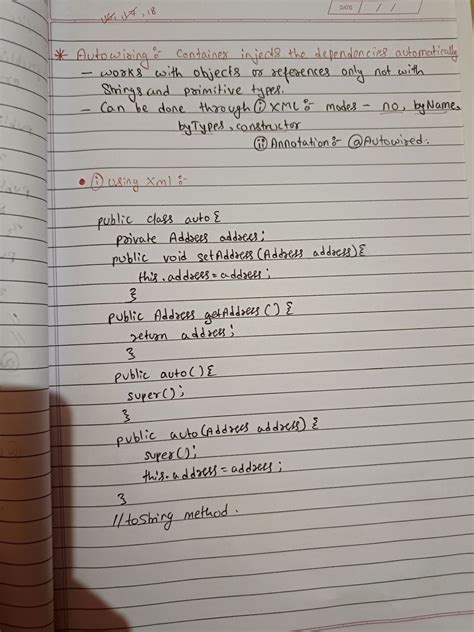 DATE / /
* Autowiring :- Container injects the dependencies automatically
- works with objects or references only not with
Strings and primitive types.
- Can be done through (i) XML :- modes - no, byName,
byTypes, constructor
(ii) Annotation :- @Autowired.
• (i) Using Xml :-
public class auto {
private Address address;
public void setAddress (Address address) {
this.address = address;
}
public Address getAddress () {
return address;
}
public auto () {
super();
}
public auto (Address address) {
super();
this.address = address;
}
// toString method.